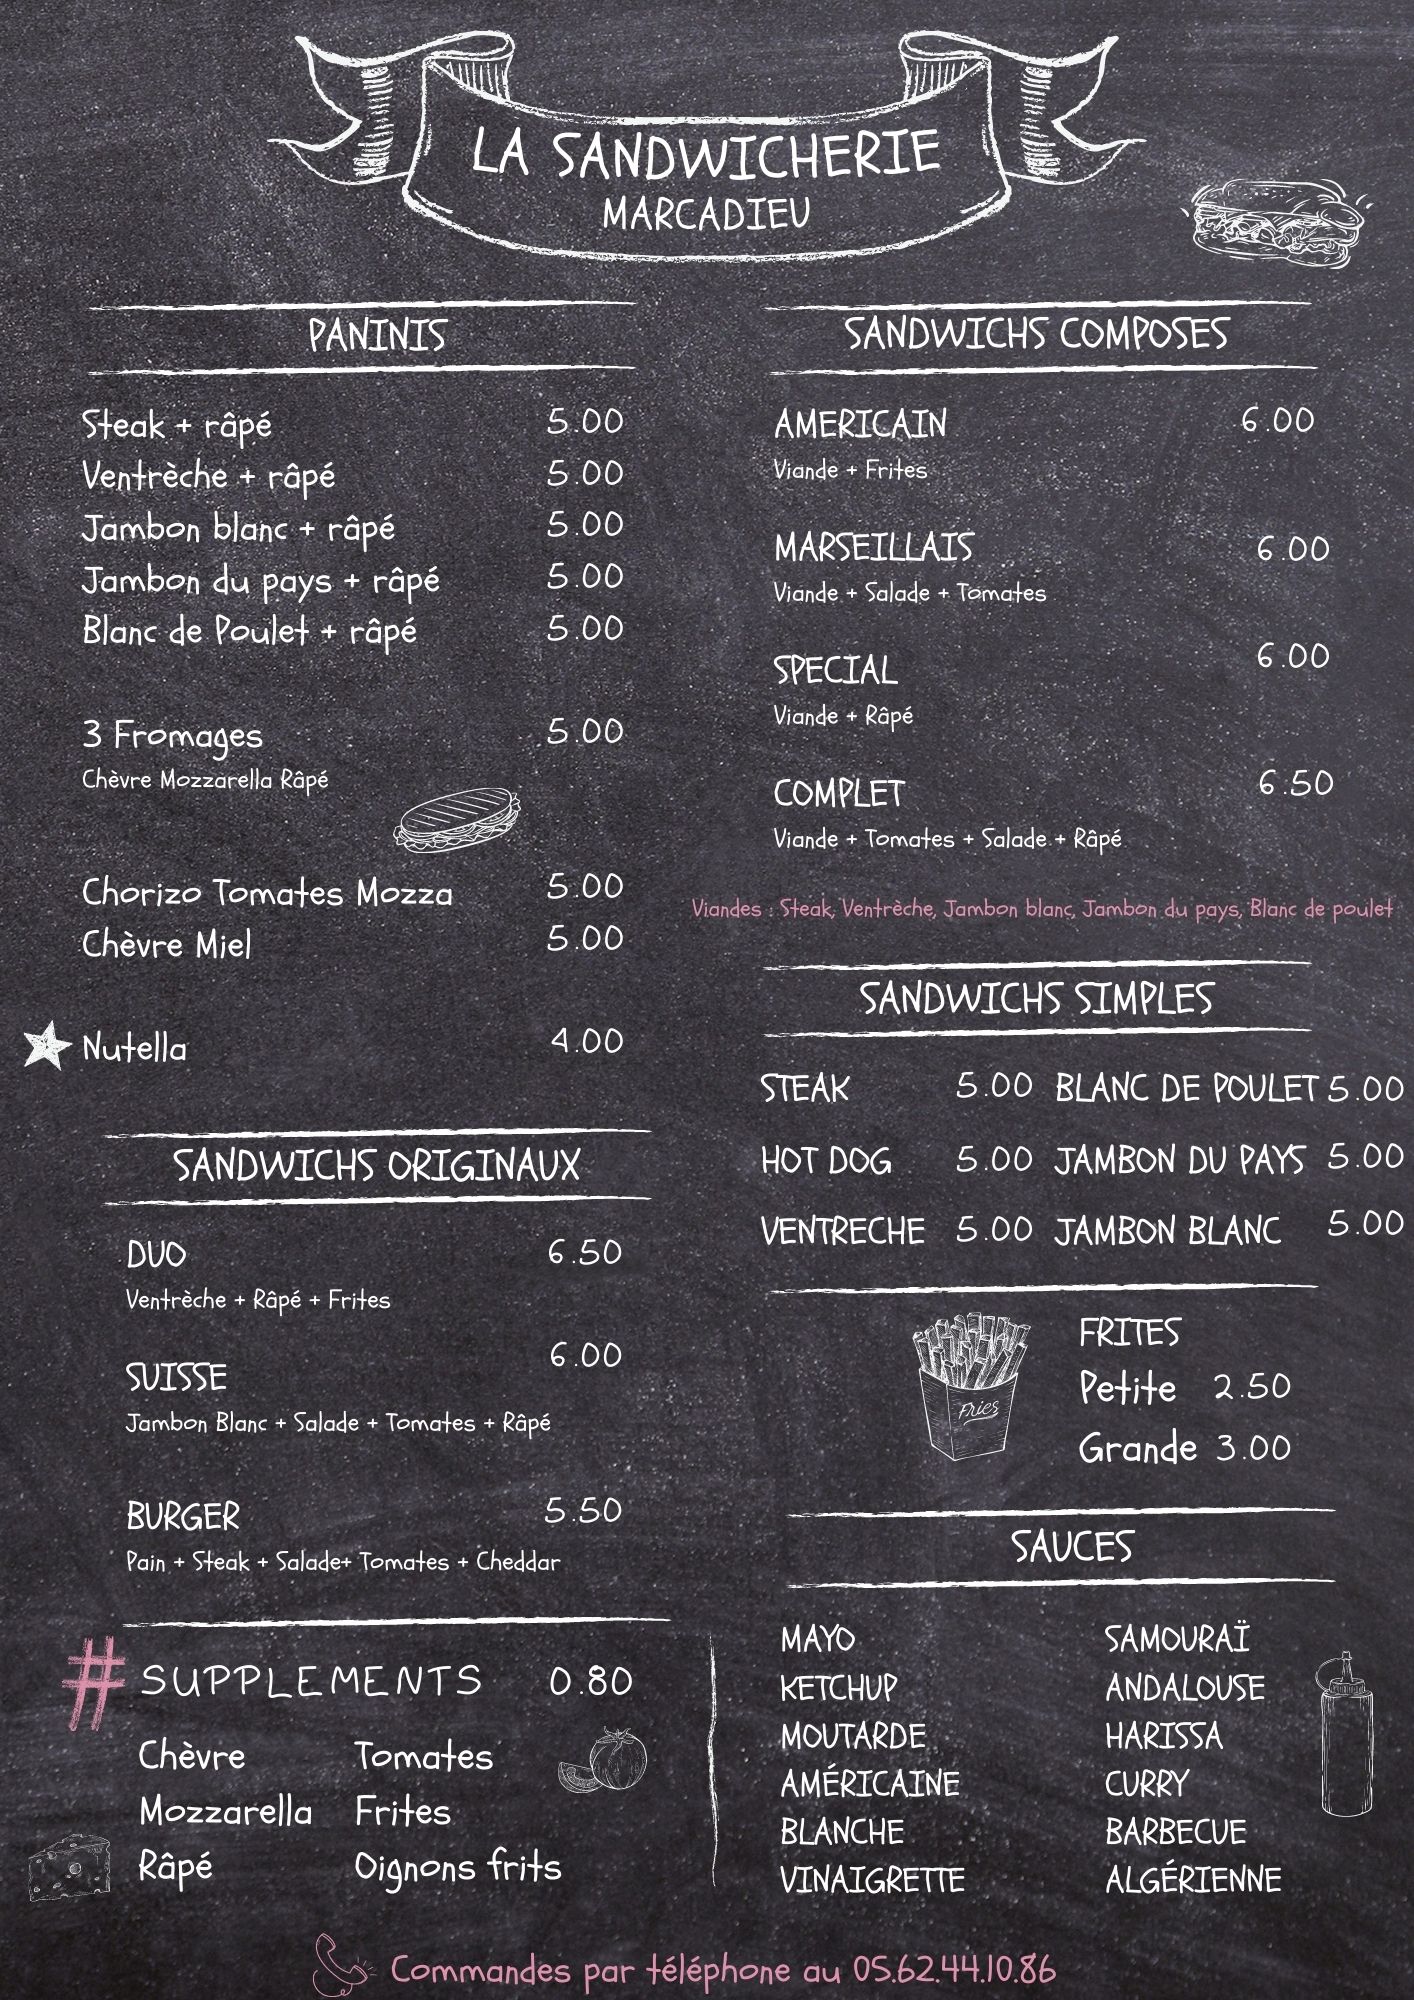 LA SANDWICHERIE
MARCADIEU
PANINIS
Steak + râpé 5.00
Ventrèche + râpé 5.00
Jambon blanc + râpé 5.00
Jambon du pays + râpé 5.00
Blanc de Poulet + râpé 5.00
3 Fromages 5.00
Chèvre Mozzarella Râpé
Chorizo Tomates Mozza 5.00
Chèvre Miel 5.00
Nutella 4.00
SANDWICHS ORIGINAUX
DUO 6.50
Ventrèche + Râpé + Frites
SUISSE 6.00
Jambon Blanc + Salade + Tomates + Râpé
BURGER 5.50
Pain + Steak + Salade+ Tomates + Cheddar
# SUPPLEMENTS 0.80
Chèvre Tomates
Mozzarella Frites
Râpé Oignons frits
SANDWICHS COMPOSES
AMERICAIN 6.00
Viande + Frites
MARSEILLAIS 6.00
Viande + Salade + Tomates
SPECIAL 6.00
Viande + Râpé
COMPLET 6.50
Viande + Tomates + Salade + Râpé
Viandes : Steak, Ventrèche, Jambon blanc, Jambon du pays, Blanc de poulet
SANDWICHS SIMPLES
STEAK 5.00 BLANC DE POULET 5.00
HOT DOG 5.00 JAMBON DU PAYS 5.00
VENTRECHE 5.00 JAMBON BLANC 5.00
Fries
FRITES
Petite 2.50
Grande 3.00
SAUCES
MAYO SAMOURAÏ
KETCHUP ANDALOUSE
MOUTARDE HARISSA
AMÉRICAINE CURRY
BLANCHE BARBECUE
VINAIGRETTE ALGÉRIENNE
Commandes par téléphone au 05.62.44.10.86